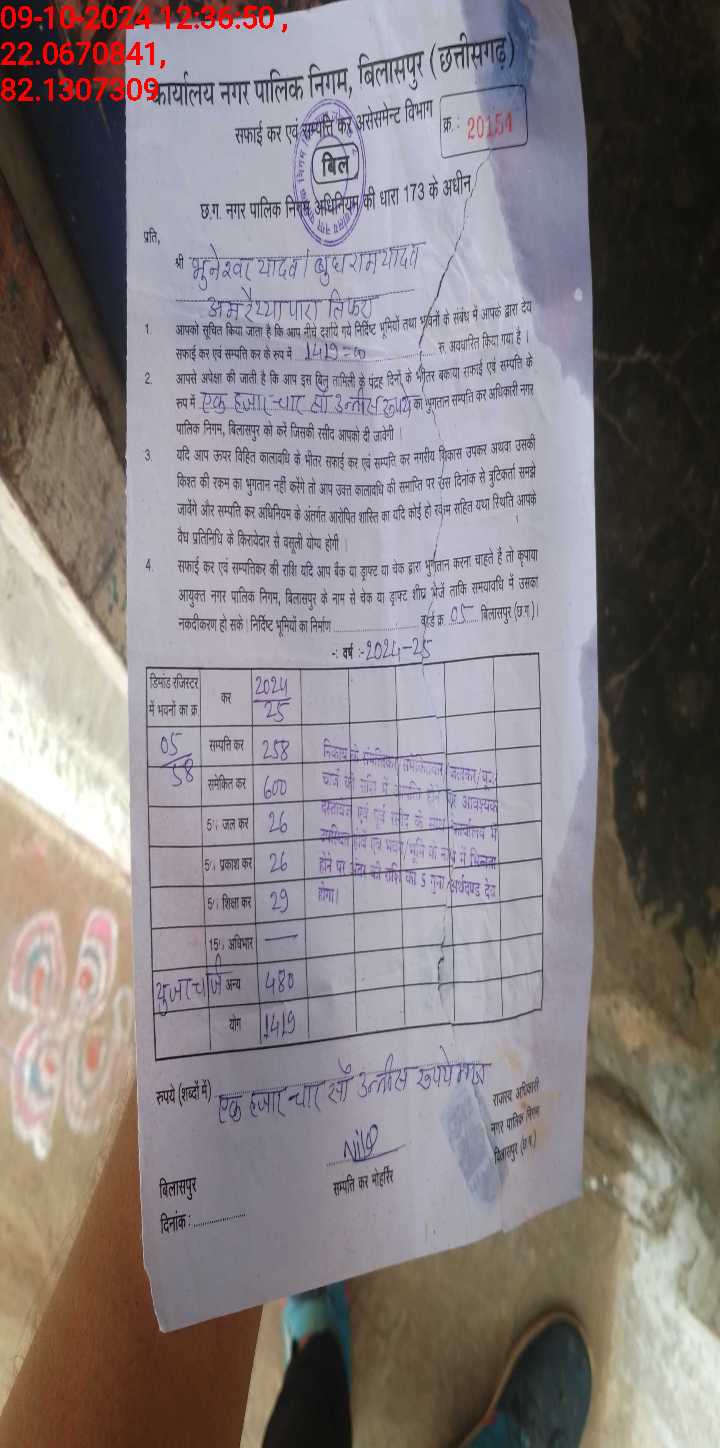 09-10-2024 12:36:50 ,
22.0670841,
82.1307309
कार्यालय नगर पालिक निगम, बिलासपुर (छत्तीसगढ़)
सफाई कर एवं सम्पत्ति कर असेसमेन्ट विभाग
क्र.: 20154
बिल
छ.ग. नगर पालिक निगम अधिनियम की धारा 173 के अधीन
प्रति,
श्री भुनेश्वर यादव / बुधराम यादव
अमरैय्यापारा तिफरा
1. आपको सूचित किया जाता है कि आप नीचे दर्शाये गये निर्दिष्ट भूमियों तथा भवनों के संबंध में आपके द्वारा देय
सफाई कर एवं सम्पत्ति कर के रूप में 1419=00 रु. अवधारित किया गया है ।
2. आपसे अपेक्षा की जाती है कि आप इस बिल तामिली के पंद्रह दिनों के भीतर बकाया सफाई एवं सम्पत्ति के
रूप में एक हजार चार सौ उन्नीस रूपये का भुगतान सम्पत्ति कर अधिकारी नगर
पालिक निगम, बिलासपुर को करें जिसकी रसीद आपको दी जावेगी ।
3. यदि आप ऊपर विहित कालावधि के भीतर सफाई कर एवं सम्पत्ति कर नगरीय विकास उपकर अथवा उसकी
किश्त की रकम का भुगतान नहीं करेंगे तो आप उक्त कालावधि की समाप्ति पर उस दिनांक से त्रुटिकर्ता समझे
जावेंगे और सम्पत्ति कर अधिनियम के अंतर्गत आरोपित शास्ति का यदि कोई हो रकम सहित यथा स्थिति आपके
वैध प्रतिनिधि के किरायेदार से वसूली योग्य होगी ।
4. सफाई कर एवं सम्पत्तिकर की राशि यदि आप बैंक या ड्राफ्ट या चेक द्वारा भुगतान करना चाहते हैं तो कृपया
आयुक्त नगर पालिक निगम, बिलासपुर के नाम से चेक या ड्राफ्ट शीघ्र भेजें ताकि समयावधि में उसका
नकदीकरण हो सके। निर्दिष्ट भूमियों का निर्माण ........ वार्ड क्र. 05 बिलासपुर (छ.ग.)।
-: वर्ष :- 2024-25
डिमांड रजिस्टर में भवनों का क्र. कर 2024/25
05/58 सम्पत्ति कर 258
समेकित कर 600
5% जल कर 26
5% प्रकाश कर 26
5% शिक्षा कर 29
15% अधिभार —
युजर चार्ज अन्य 480
योग 1419
निकाय के संपत्तिकर/समेकितकर/जलकर/यूजर
चार्ज की राशि में आपत्ति होने पर आवश्यक
दस्तावेज एवं पूर्व रसीद के साथ कार्यालय में
उपस्थित होवे एवं भवन/भूमि की नाप में भिन्नता
होने पर अंतर की राशि का 5 गुना अर्थदण्ड देय
होगा।
रूपये (शब्दों में) एक हजार चार सौ उन्नीस रूपये मात्र
राजस्व अधिकारी
नगर पालिक निगम
बिलासपुर (छ.ग.)
सम्पत्ति कर मोहर्रिर
बिलासपुर
दिनांक : ....................